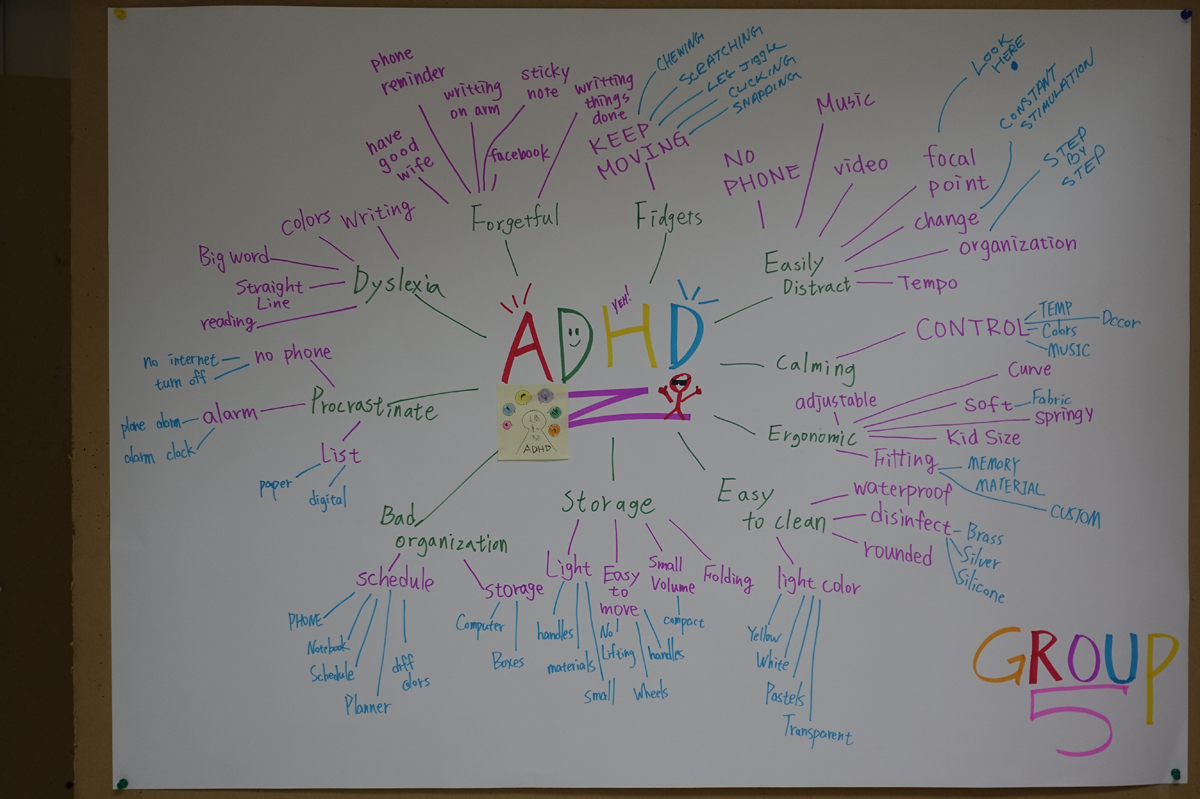 ADHD
YEH!
ADHD
Forgetful
phone
reminder
writting
on arm
sticky
note
writting
things
done
have
good
wife
facebook
Fidgets
KEEP
MOVING
CHEWING
SCRATCHING
LEG JIGGLE
CLICKING
SNAPPING
Easily
Distract
NO
PHONE
Music
video
focal
point
LOOK
HERE
change
CONSTANT
STIMULATION
organization
STEP
BY
STEP
Tempo
Calming
CONTROL
TEMP
Colors
Decor
MUSIC
Ergonomic
adjustable
Curve
Soft
Fabric
springy
Kid Size
Fitting
MEMORY
MATERIAL
CUSTOM
Easy
to clean
waterproof
disinfect
Brass
Silver
Silicone
rounded
light color
Yellow
White
Pastels
Transparent
Storage
Light
handles
materials
small
Easy
to
move
No
Lifting
Wheels
handles
Small
Volume
compact
Folding
Bad
organization
schedule
PHONE
Notebook
Schedule
Planner
diff
colors
storage
Computer
Boxes
Procrastinate
no phone
no internet
turn off
alarm
plane alarm
alarm clock
List
paper
digital
Dyslexia
colors
Writing
Big word
Straight
Line
reading
GROUP
5